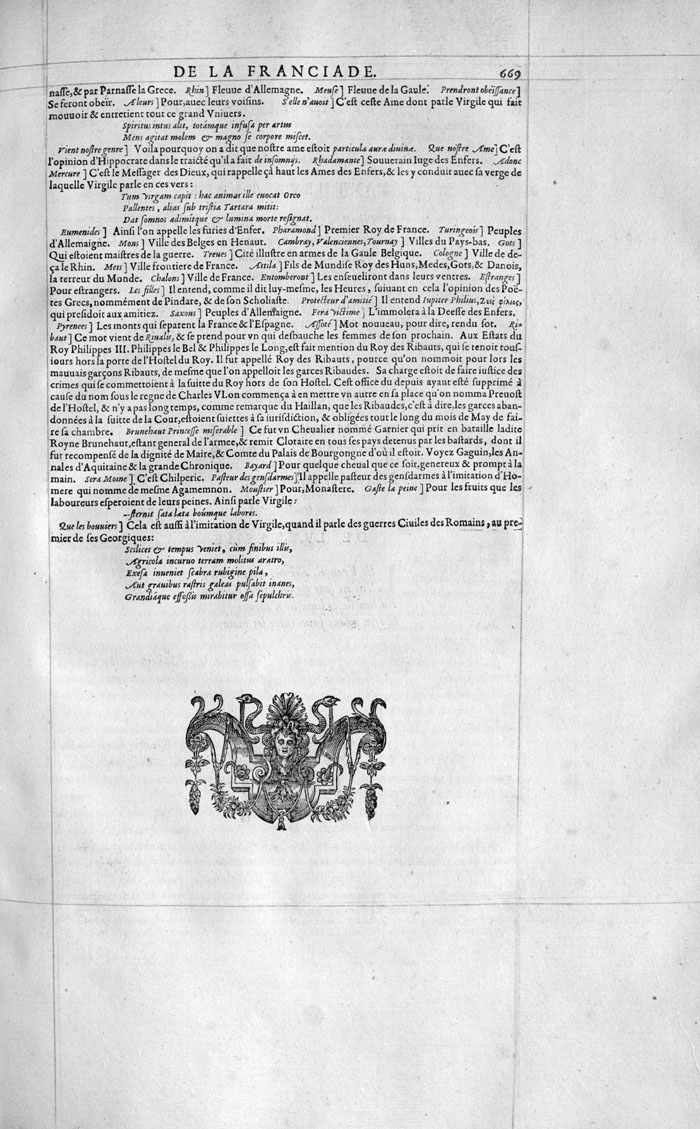 DE LA FRANCIADE. 669
nasse, & par Parnasse la Grece. Rhin] Fleuue d'Allemagne. Meuse] Fleuue de la Gaule. Prendront obeïssance]
Se feront obeïr. Aleurs] Pour, auec leurs voisins. S'elle n'auoit] C'est ceste Ame dont parle Virgile qui fait
mouuoir & entretient tout ce grand Vniuers.
Spiritus intus alit, totámque infusa per artus
Mens agitat molem & magno se corpore miscet.
Vient nostre genre] Voila pourquoy on a dit que nostre ame estoit particula auræ diuinæ. Que nostre Ame] C'est
l'opinion d'Hippocrate dans le traicté qu'il a fait de insomnijs. Rhadamante] Souuerain Iuge des Enfers. Adonc
Mercure] C'est le Messager des Dieux, qui rappelle çà haut les Ames des Enfers, & les y conduit auec sa verge de
laquelle Virgile parle en ces vers:
Tum virgam capit: hac animas ille euocat Orco
Pallentes, alias sub tristia Tartara mitit:
Dat somnos adimitque & lumina morte resignat.
Eumenides] Ainsi l'on appelle les furies d'Enfer. Pharamond] Premier Roy de France. Turingeois] Peuples
d'Allemaigne. Mons] Ville des Belges en Henaut. Cambray, Valenciennes, Tournay] Villes du Pays-bas. Gots]
Qui estoient maistres de la guerre. Treues] Cité illustre en armes de la Gaule Belgique. Cologne] Ville de de-
ça le Rhin. Mets] Ville frontiere de France. Attila] Fils de Mundise Roy des Huns, Medes, Gots, & Danois,
la terreur du Monde. Chalons] Ville de France. Entomberont] Les enseueliront dans leurs ventres. Estranges]
Pour estrangers. Les filles] Il entend, comme il dit luy-mesme, les Heures, suiuant en cela l'opinion des Poë-
tes Grecs, nommément de Pindare, & de son Scholiaste. Protecteur d'amitié] Il entend Iupiter Philius, Ζεὺς φίλιος,
qui presidoit aux amitiez. Saxons] Peuples d'Allemaigne. Fera victime] L'immolera à la Deesse des Enfers.
Pyrenees] Les monts qui separent la France & l'Espagne. Assoté] Mot nouueau, pour dire, rendu sot. Ri-
baut] Ce mot vient de Riualis, & se prend pour vn qui desbauche les femmes de son prochain. Aux Estats du
Roy Philippes III. Philippes le Bel & Philippes le Long, est fait mention du Roy des Ribauts, qui se tenoit tous-
iours hors la porte de l'Hostel du Roy. Il fut appellé Roy des Ribauts, pource qu'on nommoit pour lors les
mauuais garçons Ribauts, de mesme que l'on appelloit les garces Ribaudes. Sa charge estoit de faire iustice des
crimes qui se commettoient à la suitte du Roy hors de son Hostel. Cest office du depuis ayant esté supprimé à
cause du nom sous le regne de Charles VI. on commença à en mettre vn autre en sa place qu'on nomma Preuost
de l'Hostel, & n'y a pas long temps, comme remarque du Haillan, que les Ribaudes, c'est à dire, les garces aban-
données à la suitte de la Cour, estoient suiettes à sa iurisdiction, & obligées tout le long du mois de May de fai-
re sa chambre. Brunehaut Princesse miserable] Ce fut vn Cheualier nommé Garnier qui prit en bataille ladite
Royne Brunehaut, estant general de l'armee, & remit Clotaire en tous ses pays detenus par les bastards, dont il
fut recompensé de la dignité de Maire, & Comte du Palais de Bourgongne d'où il estoit. Voyez Gaguin, les An-
nales d'Aquitaine & la grande Chronique. Bayard] Pour quelque cheual que ce soit, genereux & prompt à la
main. Sera Moine] C'est Chilperic. Pasteur des gensdarmes] Il appelle pasteur des gensdarmes à l'imitation d'Ho-
mere qui nomme de mesme Agamemnon. Moustier] Pour, Monastere. Gaste la peine] Pour les fruits que les
laboureurs esperoient de leurs peines. Ainsi parle Virgile:
--sternit sata læta boúmque labores.
Que les bouuiers] Cela est aussi à l'imitation de Virgile, quand il parle des guerres Ciuiles des Romains, au pre-
mier de ses Georgiques:
Scilicet & tempus veniet, cùm finibus illis,
Agricola incuruo terram molitus aratro,
Exesa inueniet scabra rubigine pila,
Aut grauibus rastris galeas pulsabit inanes,
Grandiáque effossis mirabitur ossa sepulchris.